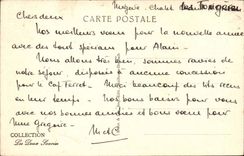 Megève - Chalet des Fougères
CARTE POSTALE
Chers deux
Nos meilleurs vœux pour la nouvelle année
avec des tout spéciaux pour Alain -
Nous allons très bien, sommes ravis de
notre séjour, disposés à aucune concession
pour le Cap Ferret. Merci beaucoup des
en leur temps. - Nos bons baisers pour vous avec
nos bonnes amitiés et bons vœux pour
Mme Grégoire -
COLLECTION
Les Deux Savoie